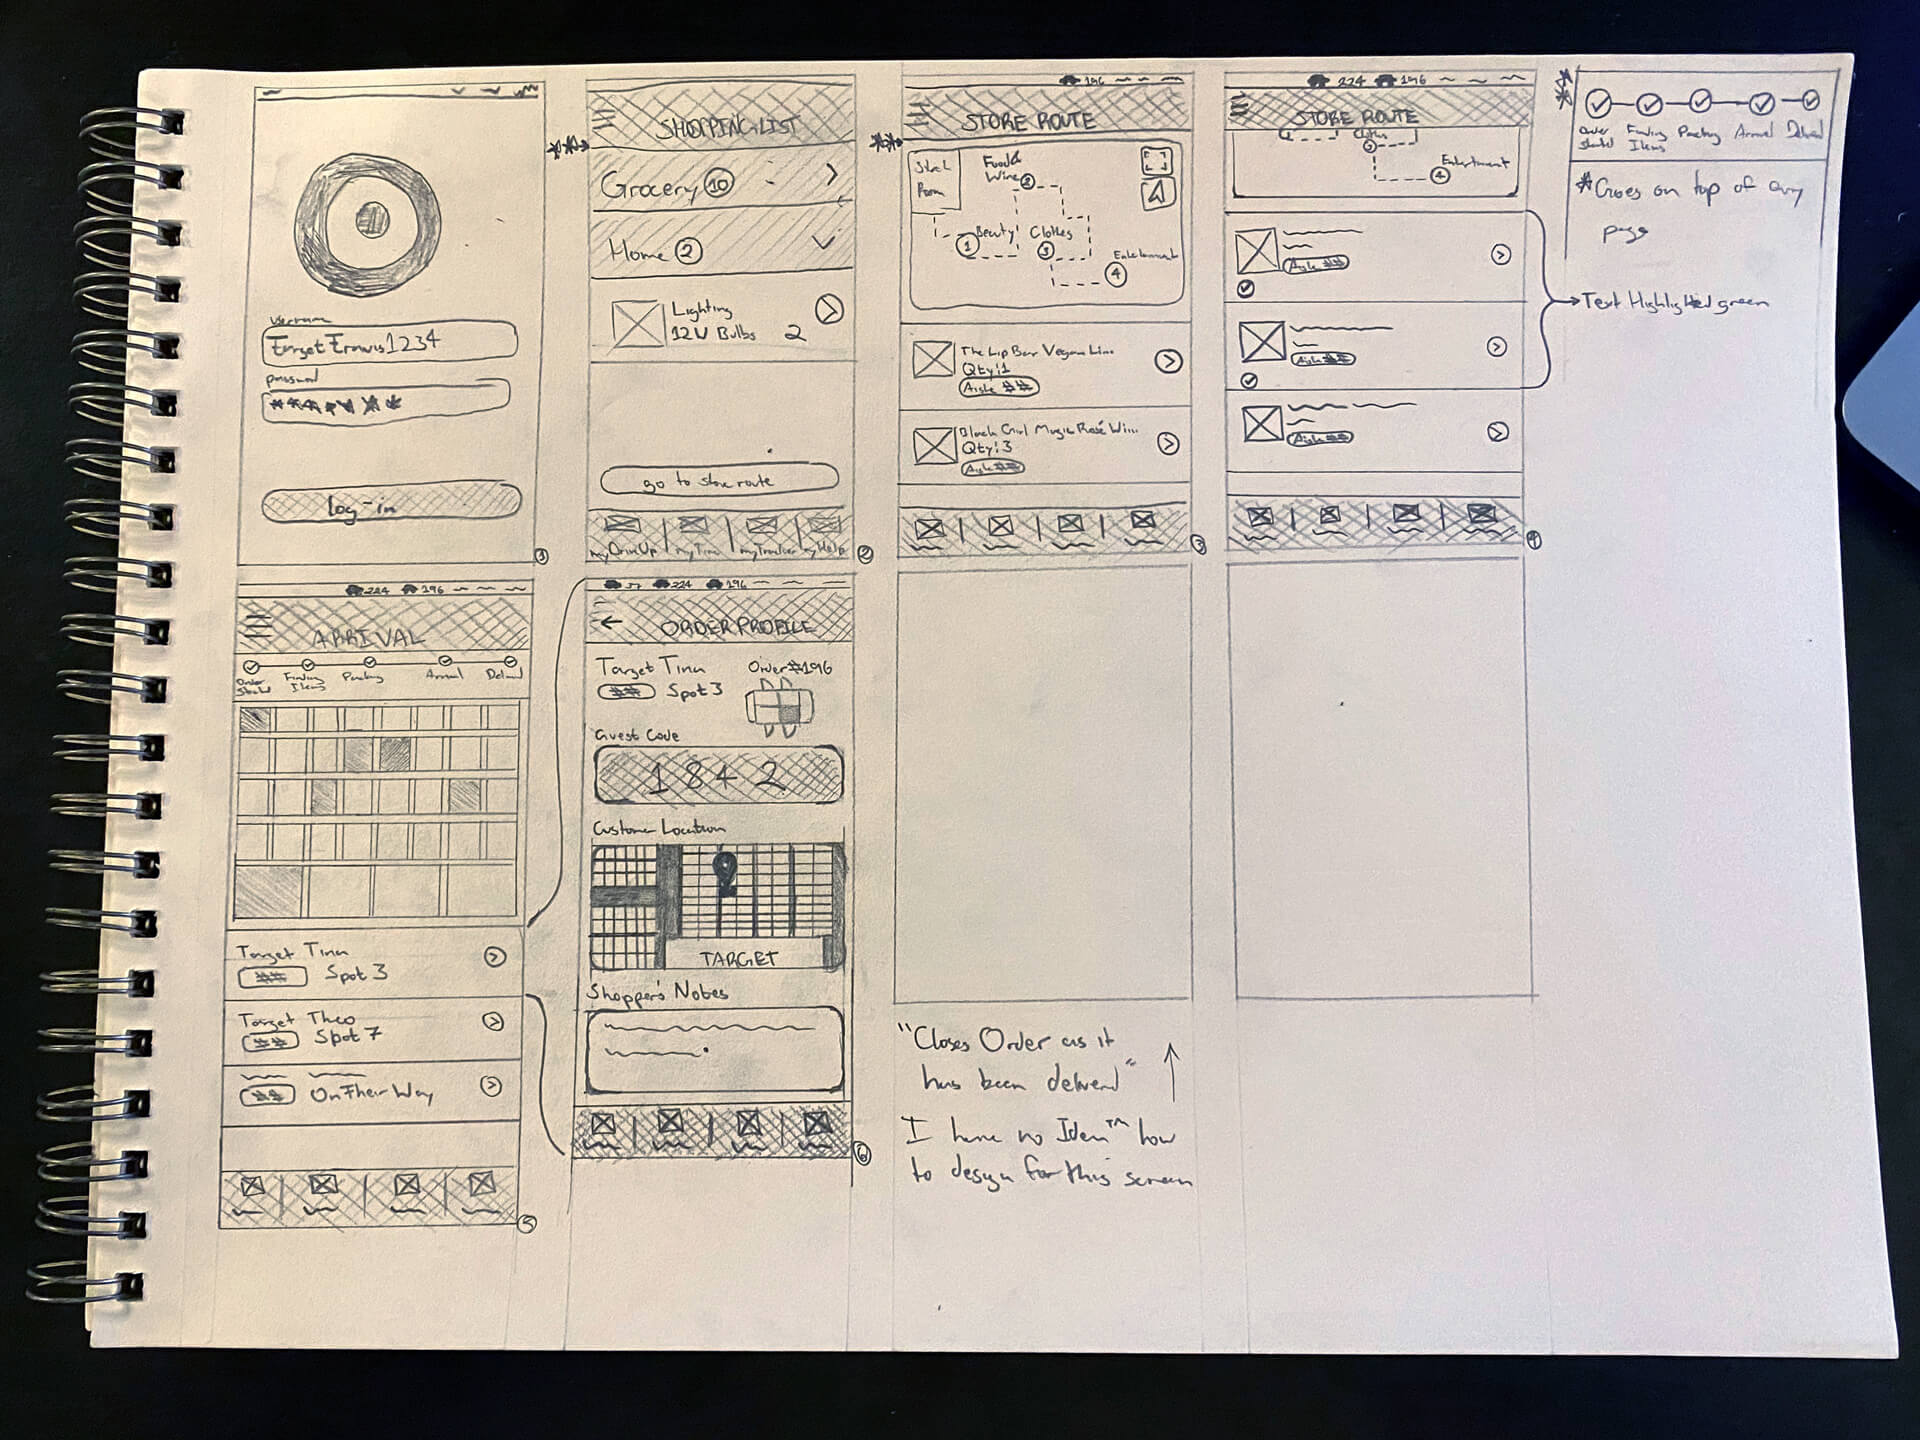 username
TargetTravis1234
password
Log-in
1
**
SHOPPING LIST
Grocery 10
Home 2
Lighting
12W Bulbs 2
go to store route
myDriveUp
myTime
myTracker
myHelp
2
196
**
STORE ROUTE
Food &
Wine 2
1 Beauty
Clothes
3
Entertainment
4
The Lip Bar Vegan Line
Qty: 1
Aisle ##
Black Girl Magic Rosé Wi...
Qty: 3
Aisle ##
3
224 196
STORE ROUTE
Clothes
3
Entertainment
4
Aisle ##
Aisle ##
Aisle ##
4
Text Highlighted green
**
Order
Started
Finding
Items
Packing
Arrival
Delivered
*Goes on top of any
page
224 196
ARRIVAL
Order
Started
Finding
Items
Packing
Arrival
Delivered
Target Tina
## Spot 3
Target Theo
## Spot 7
## On Their Way
5
37 224 196
ORDER PROFILE
Target Tina Order#196
## Spot 3
Guest Code
1842
Customer Location
TARGET
Shopper's Notes
6
"Closes Order as it
has been delivered"
I have no Idea™ how
to design for this screen